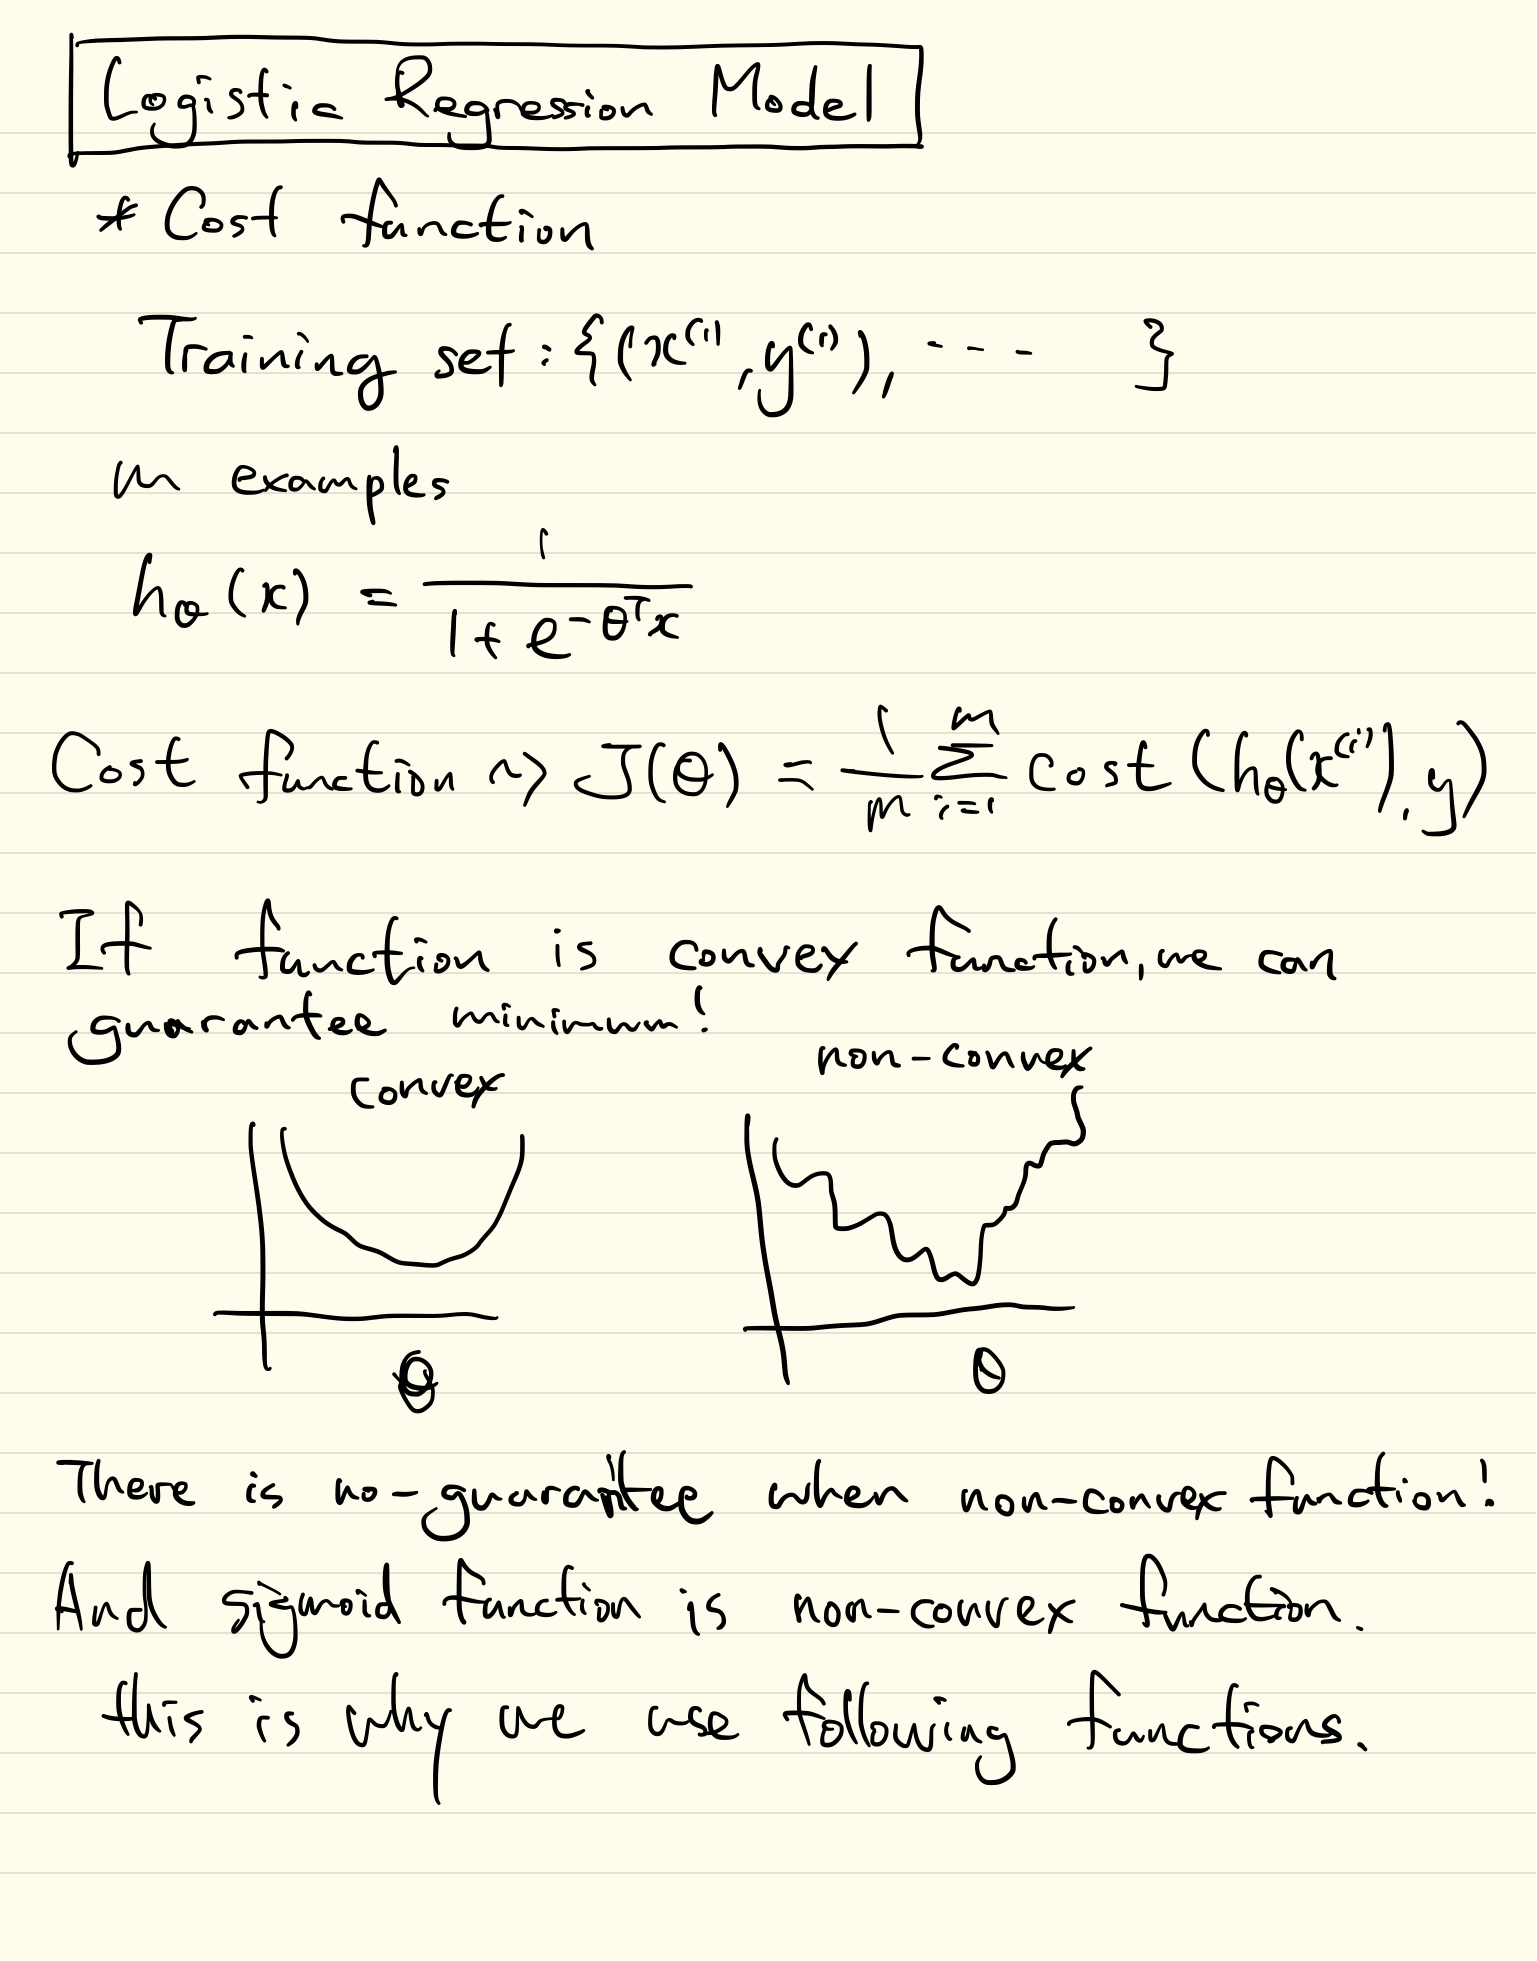 Logistic Regression Model
* Cost function
Training set : {(x⁽¹⁾, y⁽¹⁾), ---- }
m examples
hθ(x) = 1 / (1 + e^(-θᵀx))
Cost function ~> J(θ) = 1/m Σ_{i=1}^{m} cost (hθ(x⁽ⁱ⁾), y)
If function is convex function, we can
guarantee minimum!
convex non-convex
θ θ
There is no-guarantee when non-convex function!
And sigmoid function is non-convex function.
this is why we use following functions.